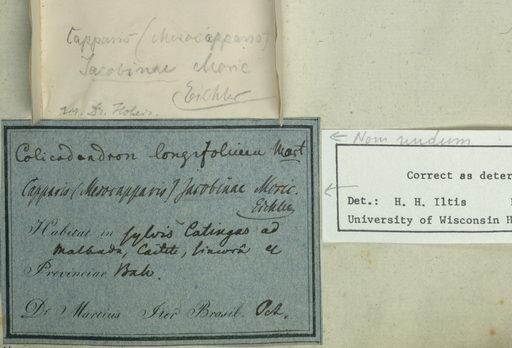 Capparis (Mesocapparis)
Jacobinae Moric
Eichler
Colicodendron longifolium Mart
Capparis (Mesocapparis) Jacobinae Moric.
Eichler
Habitat in sylvis Catingas ad
Malhada, Caitete, Sincorá &
Provinciae Bah.
Dr Martius Iter Brasil. Oct.
← Nom nudum
←
Correct as deter
Det.: H. H. Iltis
University of Wisconsin H